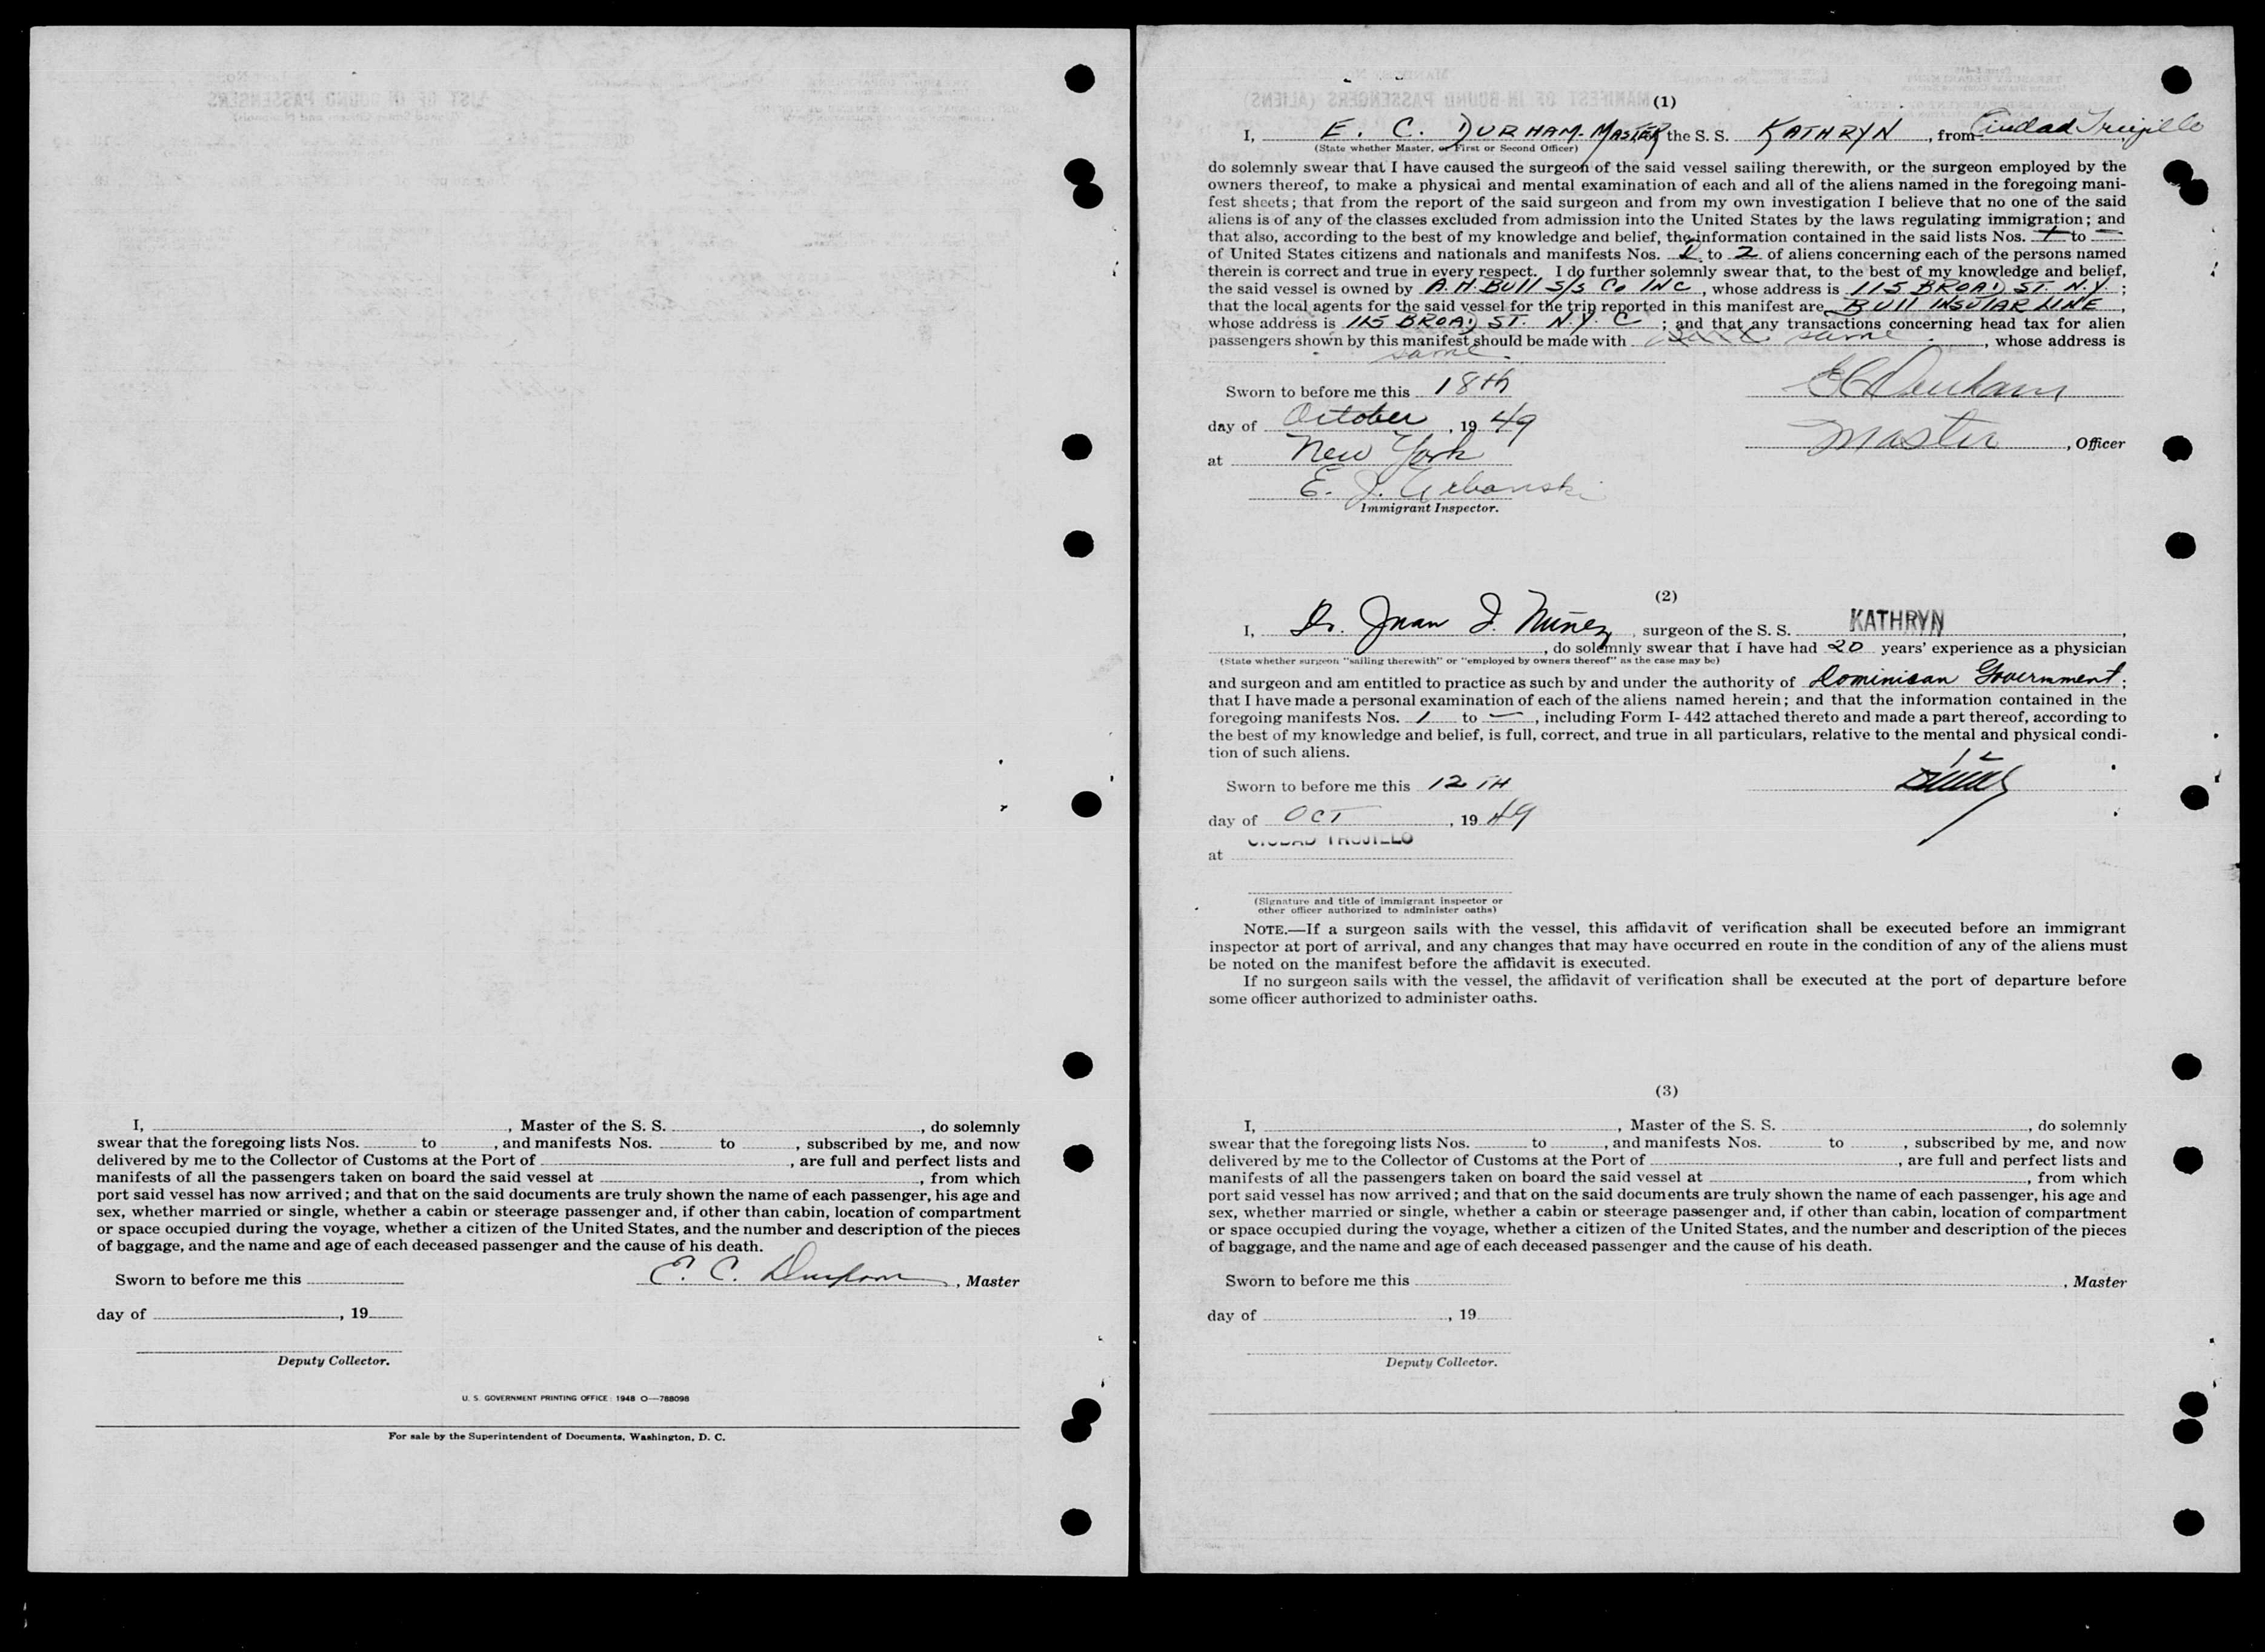 I, , Master of the S. S. , do solemnly
swear that the foregoing lists Nos. to , and manifests Nos. to , subscribed by me, and now
delivered by me to the Collector of Customs at the Port of , are full and perfect lists and
manifests of all the passengers taken on board the said vessel at , from which
port said vessel has now arrived; and that on the said documents are truly shown the name of each passenger, his age and
sex, whether married or single, whether a cabin or steerage passenger and, if other than cabin, location of compartment
or space occupied during the voyage, whether a citizen of the United States, and the number and description of the pieces
of baggage, and the name and age of each deceased passenger and the cause of his death.
Sworn to before me this E. C. Durham, Master
day of , 19
Deputy Collector.
U. S. GOVERNMENT PRINTING OFFICE: 1948 O—788098
For sale by the Superintendent of Documents, Washington, D. C.
(1)
I, E. C. DURHAM. MASTER the S. S. KATHRYN, from Ciudad Trujillo
(State whether Master, or First or Second Officer)
do solemnly swear that I have caused the surgeon of the said vessel sailing therewith, or the surgeon employed by the
owners thereof, to make a physical and mental examination of each and all of the aliens named in the foregoing mani-
fest sheets; that from the report of the said surgeon and from my own investigation I believe that no one of the said
aliens is of any of the classes excluded from admission into the United States by the laws regulating immigration; and
that also, according to the best of my knowledge and belief, the information contained in the said lists Nos. 1 to —
of United States citizens and nationals and manifests Nos. to 2 of aliens concerning each of the persons named
therein is correct and true in every respect. I do further solemnly swear that, to the best of my knowledge and belief,
the said vessel is owned by A. H. BUll S/S Co INC, whose address is 115 BROAD ST. N.Y;
that the local agents for the said vessel for the trip reported in this manifest are BUll INSULAR LINE,
whose address is 115 BROAD ST. N.Y. C; and that any transactions concerning head tax for alien
passengers shown by this manifest should be made with same, whose address is
same.
Sworn to before me this 18th E C Durham
day of October, 1949
Master, Officer
at New York
E. J. Urbanski
Immigrant Inspector.
(2)
I, Dr. Juan J. Núñez, surgeon of the S. S. KATHRYN,
, do solemnly swear that I have had 20 years' experience as a physician
(State whether surgeon "sailing therewith" or "employed by owners thereof" as the case may be)
and surgeon and am entitled to practice as such by and under the authority of Dominican Government;
that I have made a personal examination of each of the aliens named herein; and that the information contained in the
foregoing manifests Nos. 1 to —, including Form I-442 attached thereto and made a part thereof, according to
the best of my knowledge and belief, is full, correct, and true in all particulars, relative to the mental and physical condi-
tion of such aliens.
Sworn to before me this 12 TH
day of OCT, 1949
at CIUDAD TRUJILLO
(Signature and title of immigrant inspector or
other officer authorized to administer oaths)
NOTE.—If a surgeon sails with the vessel, this affidavit of verification shall be executed before an immigrant
inspector at port of arrival, and any changes that may have occurred en route in the condition of any of the aliens must
be noted on the manifest before the affidavit is executed.
If no surgeon sails with the vessel, the affidavit of verification shall be executed at the port of departure before
some officer authorized to administer oaths.
(3)
I, , Master of the S. S. , do solemnly
swear that the foregoing lists Nos. to , and manifests Nos. to , subscribed by me, and now
delivered by me to the Collector of Customs at the Port of , are full and perfect lists and
manifests of all the passengers taken on board the said vessel at , from which
port said vessel has now arrived; and that on the said documents are truly shown the name of each passenger, his age and
sex, whether married or single, whether a cabin or steerage passenger and, if other than cabin, location of compartment
or space occupied during the voyage, whether a citizen of the United States, and the number and description of the pieces
of baggage, and the name and age of each deceased passenger and the cause of his death.
Sworn to before me this , Master
day of , 19
Deputy Collector.